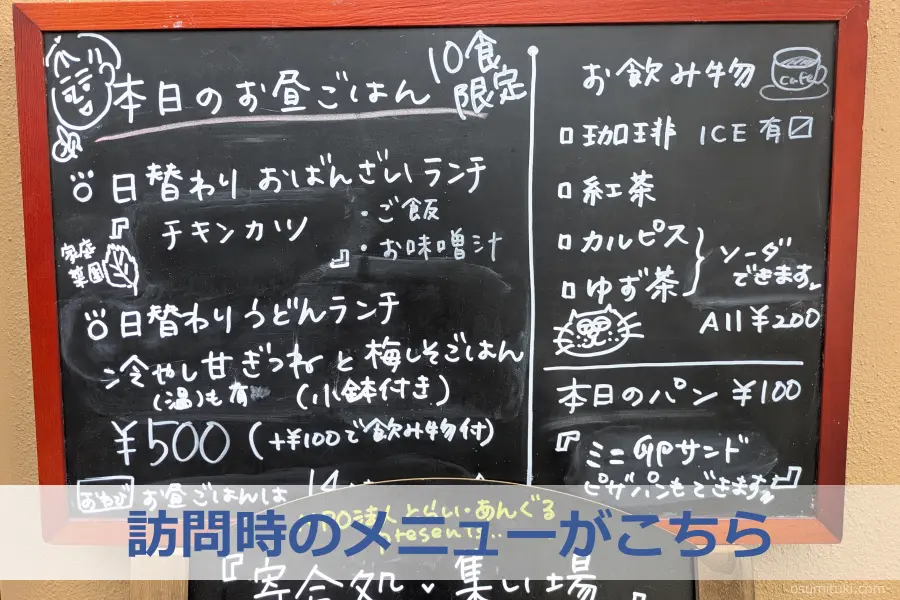 本日のお昼ごはん
10食
限定
日替わり おばんざいランチ
『 チキンカツ 』
・ご飯
・お味噌汁
家庭
菜園
日替わりうどんランチ
冷やし甘ぎつねと梅しそごはん
(温)も有 (小鉢付き)
¥500 (+¥100で飲み物付)
お昼ごはんは
お飲み物
cafe
珈琲 ICE有
紅茶
カルピス
ゆず茶
ソーダ
できます
All ¥200
本日のパン ¥100
『ミニ卵サンド
ピザパンもできます』
訪問時のメニューがこちら
とらい・あんぐる
presents...
『寄合処・集い場
osumituki.com